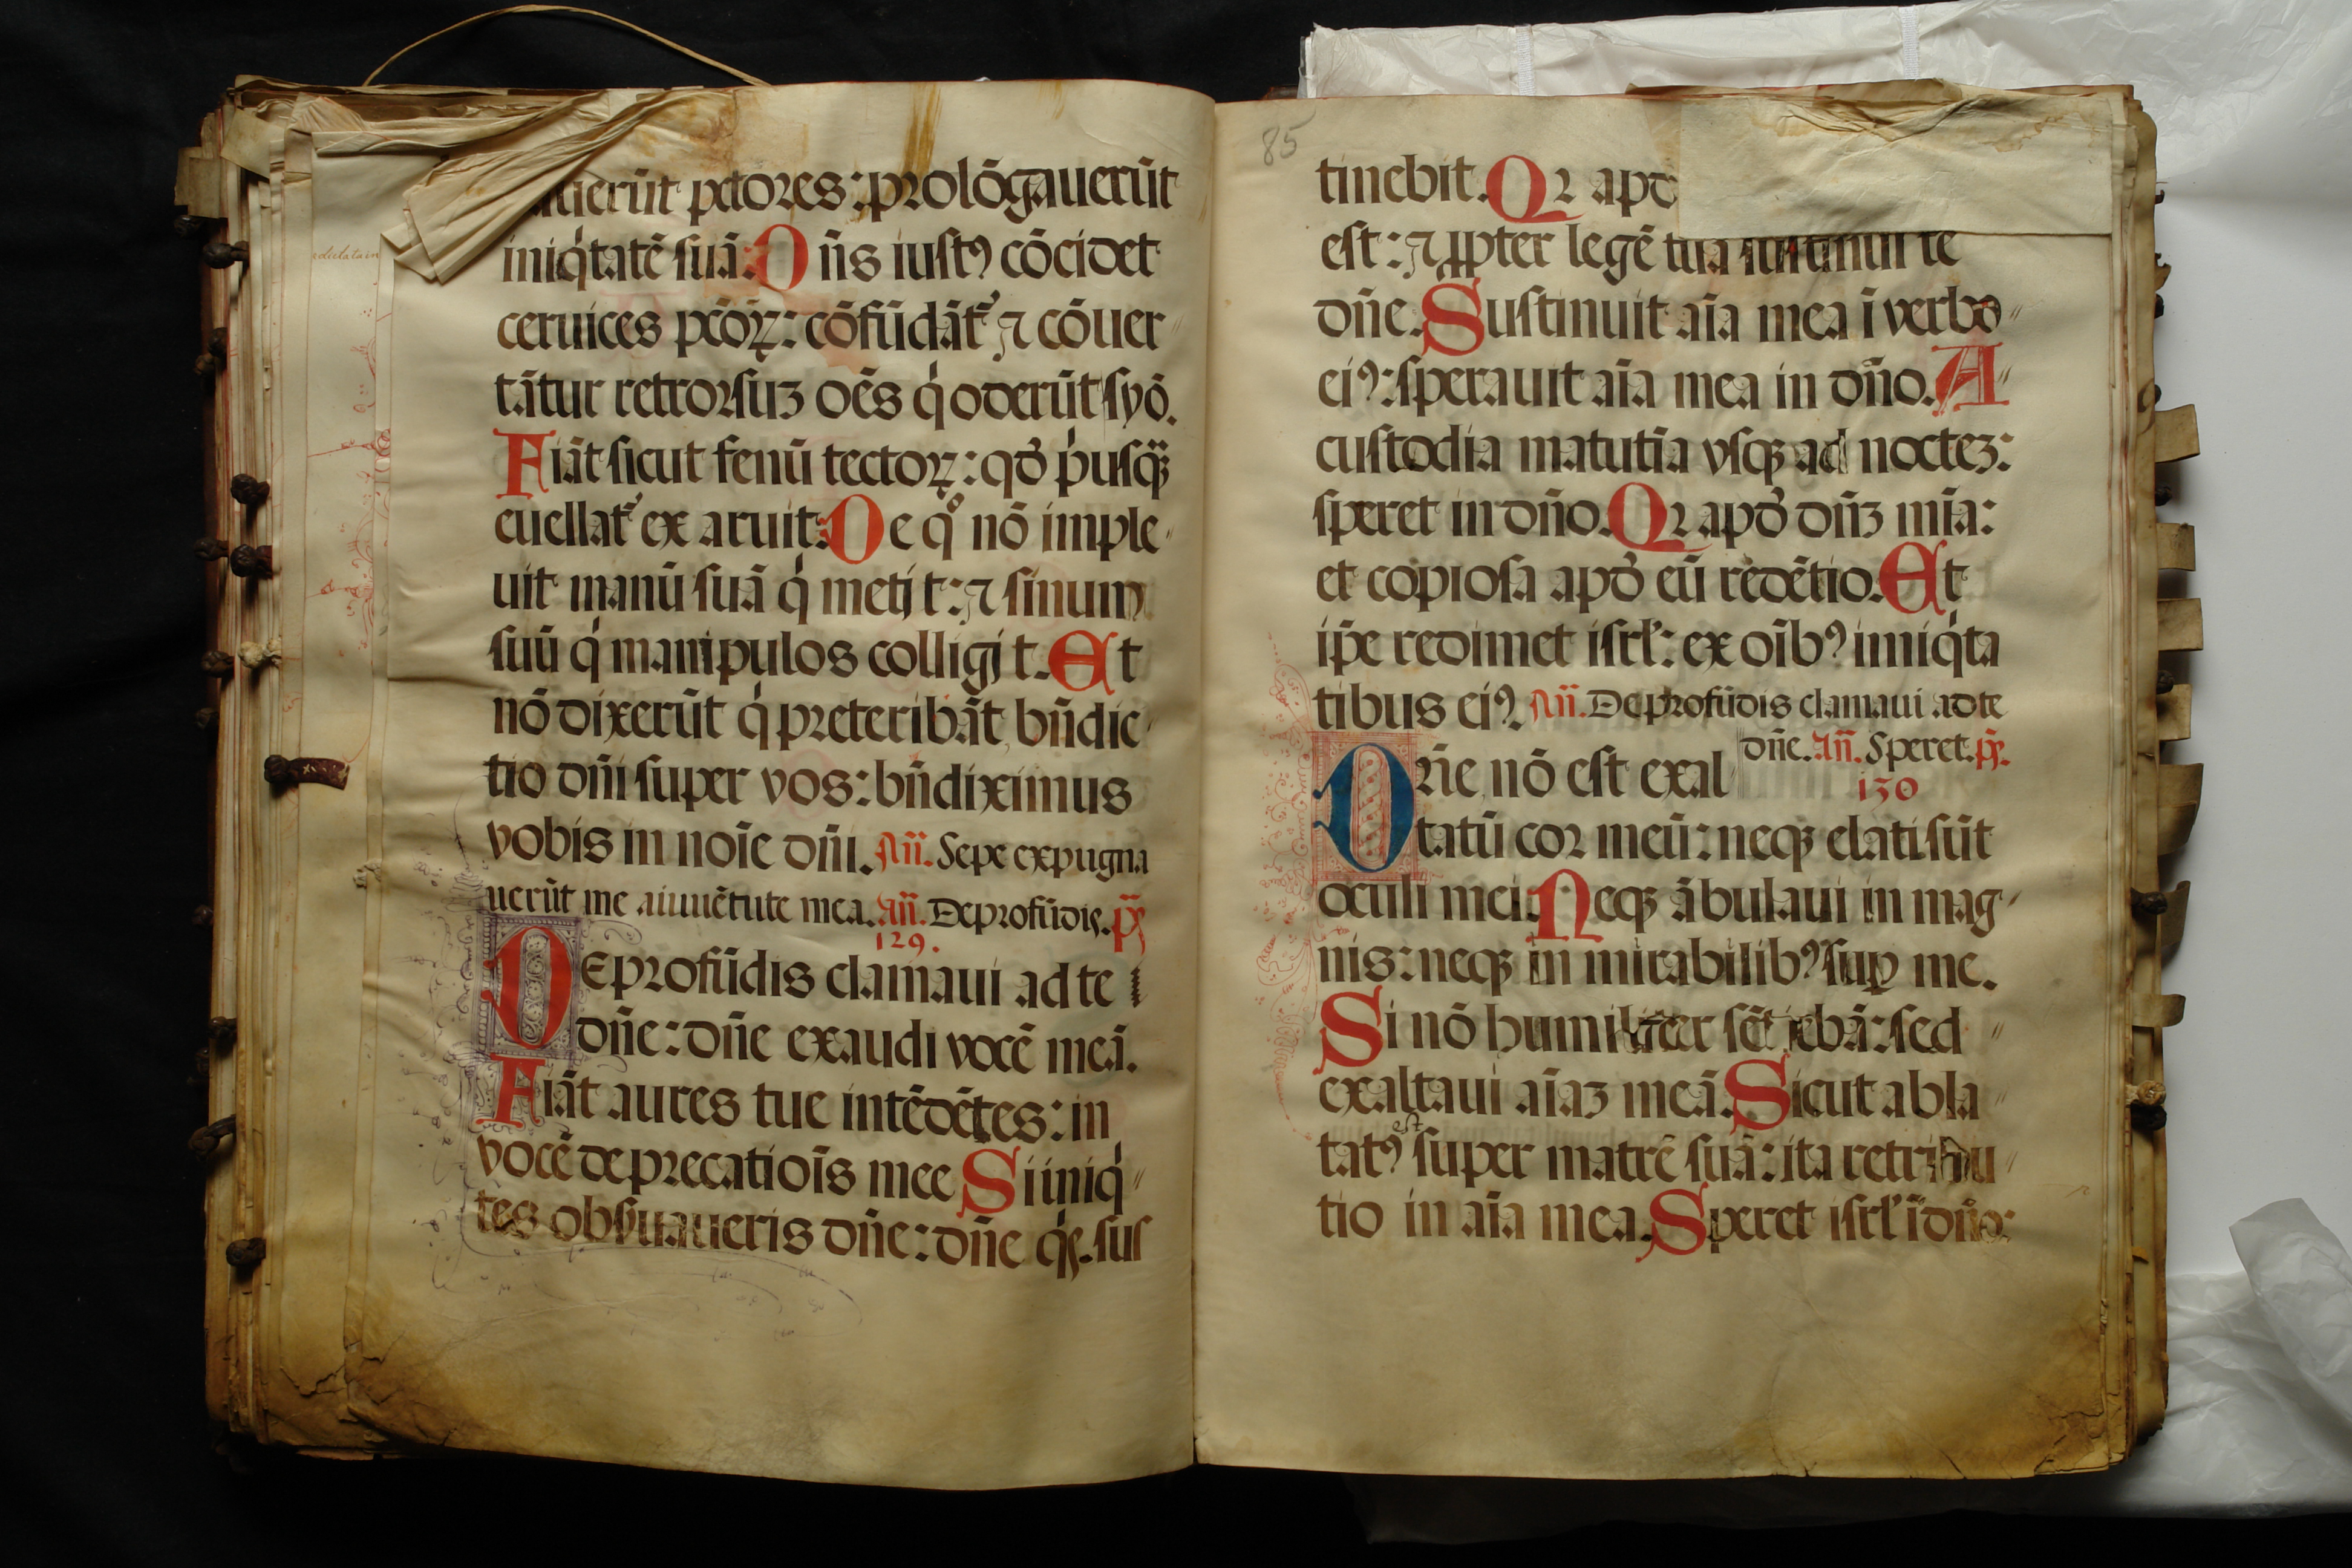 uerūt pctores: prolōgauerūt
iniq̇tatē suā: Dn̄s iustꝰ cōcidet
ceruices pctōꝝ: cōfūdāt᷑ ⁊ cōuer
tātur retrorsuꝫ oēs q̇ oderūt syō.
Fiāt sicut fenū tectoꝝ: qđ p̍usq̄ꝫ
euellat᷑ ex aruit: De qͦ nō imple
uit manū suā q̇ metit: ⁊ sinum
suū q̇ manipulos colligit. Et
nō dixerūt q̇ preteribāt, bn̄dic
tio dn̄i super vos: bn̄diximus
vobis in noīe dn̄i. An̄. Sepe expugna
uerūt me aiuuētute mea. An̄. De profūdis. p̄s
129.
De profūdis clamaui ad te
dn̄e: dn̄e exaudi vocē meā.
Fiāt aures tue intēdētes: in
vocē deprecatiōis mee Si iniq̇
tes obſuaueris dn̄e: dn̄e q̇s sus
85
tinebit. Qꝛ apđ
est: ⁊ ꝓpter legē tuā sustinui te
dn̄e. Sustinuit aīa mea ī verbo
eiꝰ: sperauit aīa mea in dn̄o. A
custodia matutīa vsqꝫ ad nocteꝫ:
speret in dn̄o. Qꝛ apđ dn̄ꝫ mīa:
et copiosa apđ eū redētio. Et
ip̄e redimet isrł: ex oībꝰ iniq̇ta
tibus eiꝰ. An̄. De profūdis clamaui ad te
dn̄e. An̄. Speret. p̄s.
130
Dn̄e nō est exal
tatū cor meū: neqꝫ elati sūt
oculi mei. Neqꝫ ābulaui in mag
nis: neqꝫ in mirabilibꝰ suꝑ me.
Si nō humiliter sētiebā: sed
exaltaui aīaꝫ meā. Sicut abla
est
tatꝰ super matrē suā: ita retribu
tio in aīa mea. Speret isrł ī dn̄o: